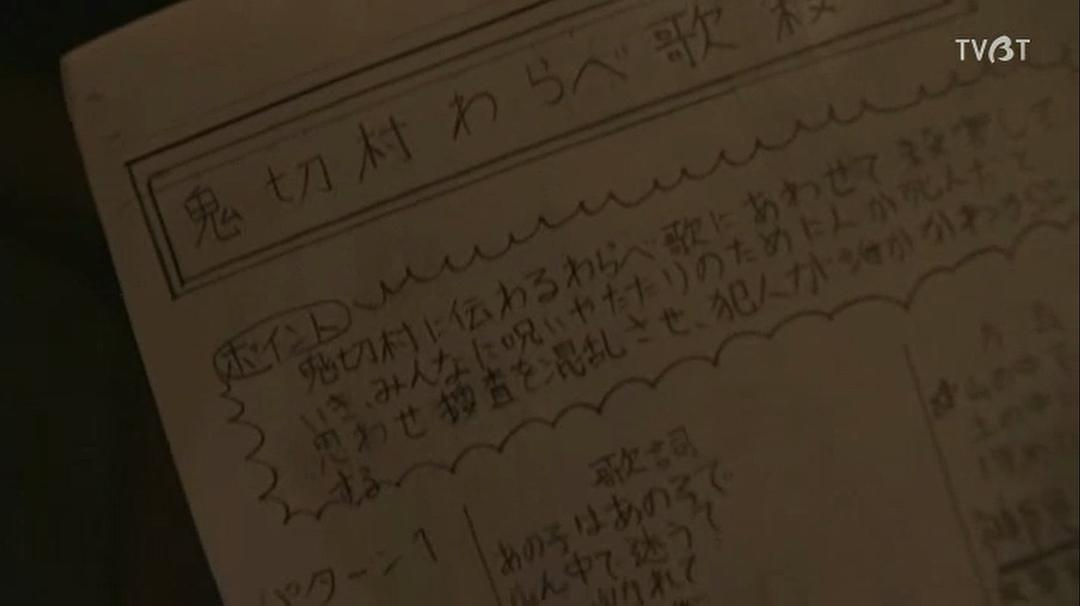 TVBT
鬼切村わらべ歌 殺
ポイント
鬼切村に伝わるわらべ歌にあわせて 殺害して
いき、みんなに呪いやたたりのために人が死んだと
思わせ捜査を混乱させ、犯人が誰かわからに
する
歌詞
パターン1
あの子はあの子で
山ん中で迷うて
方法
山の中で
土の中に